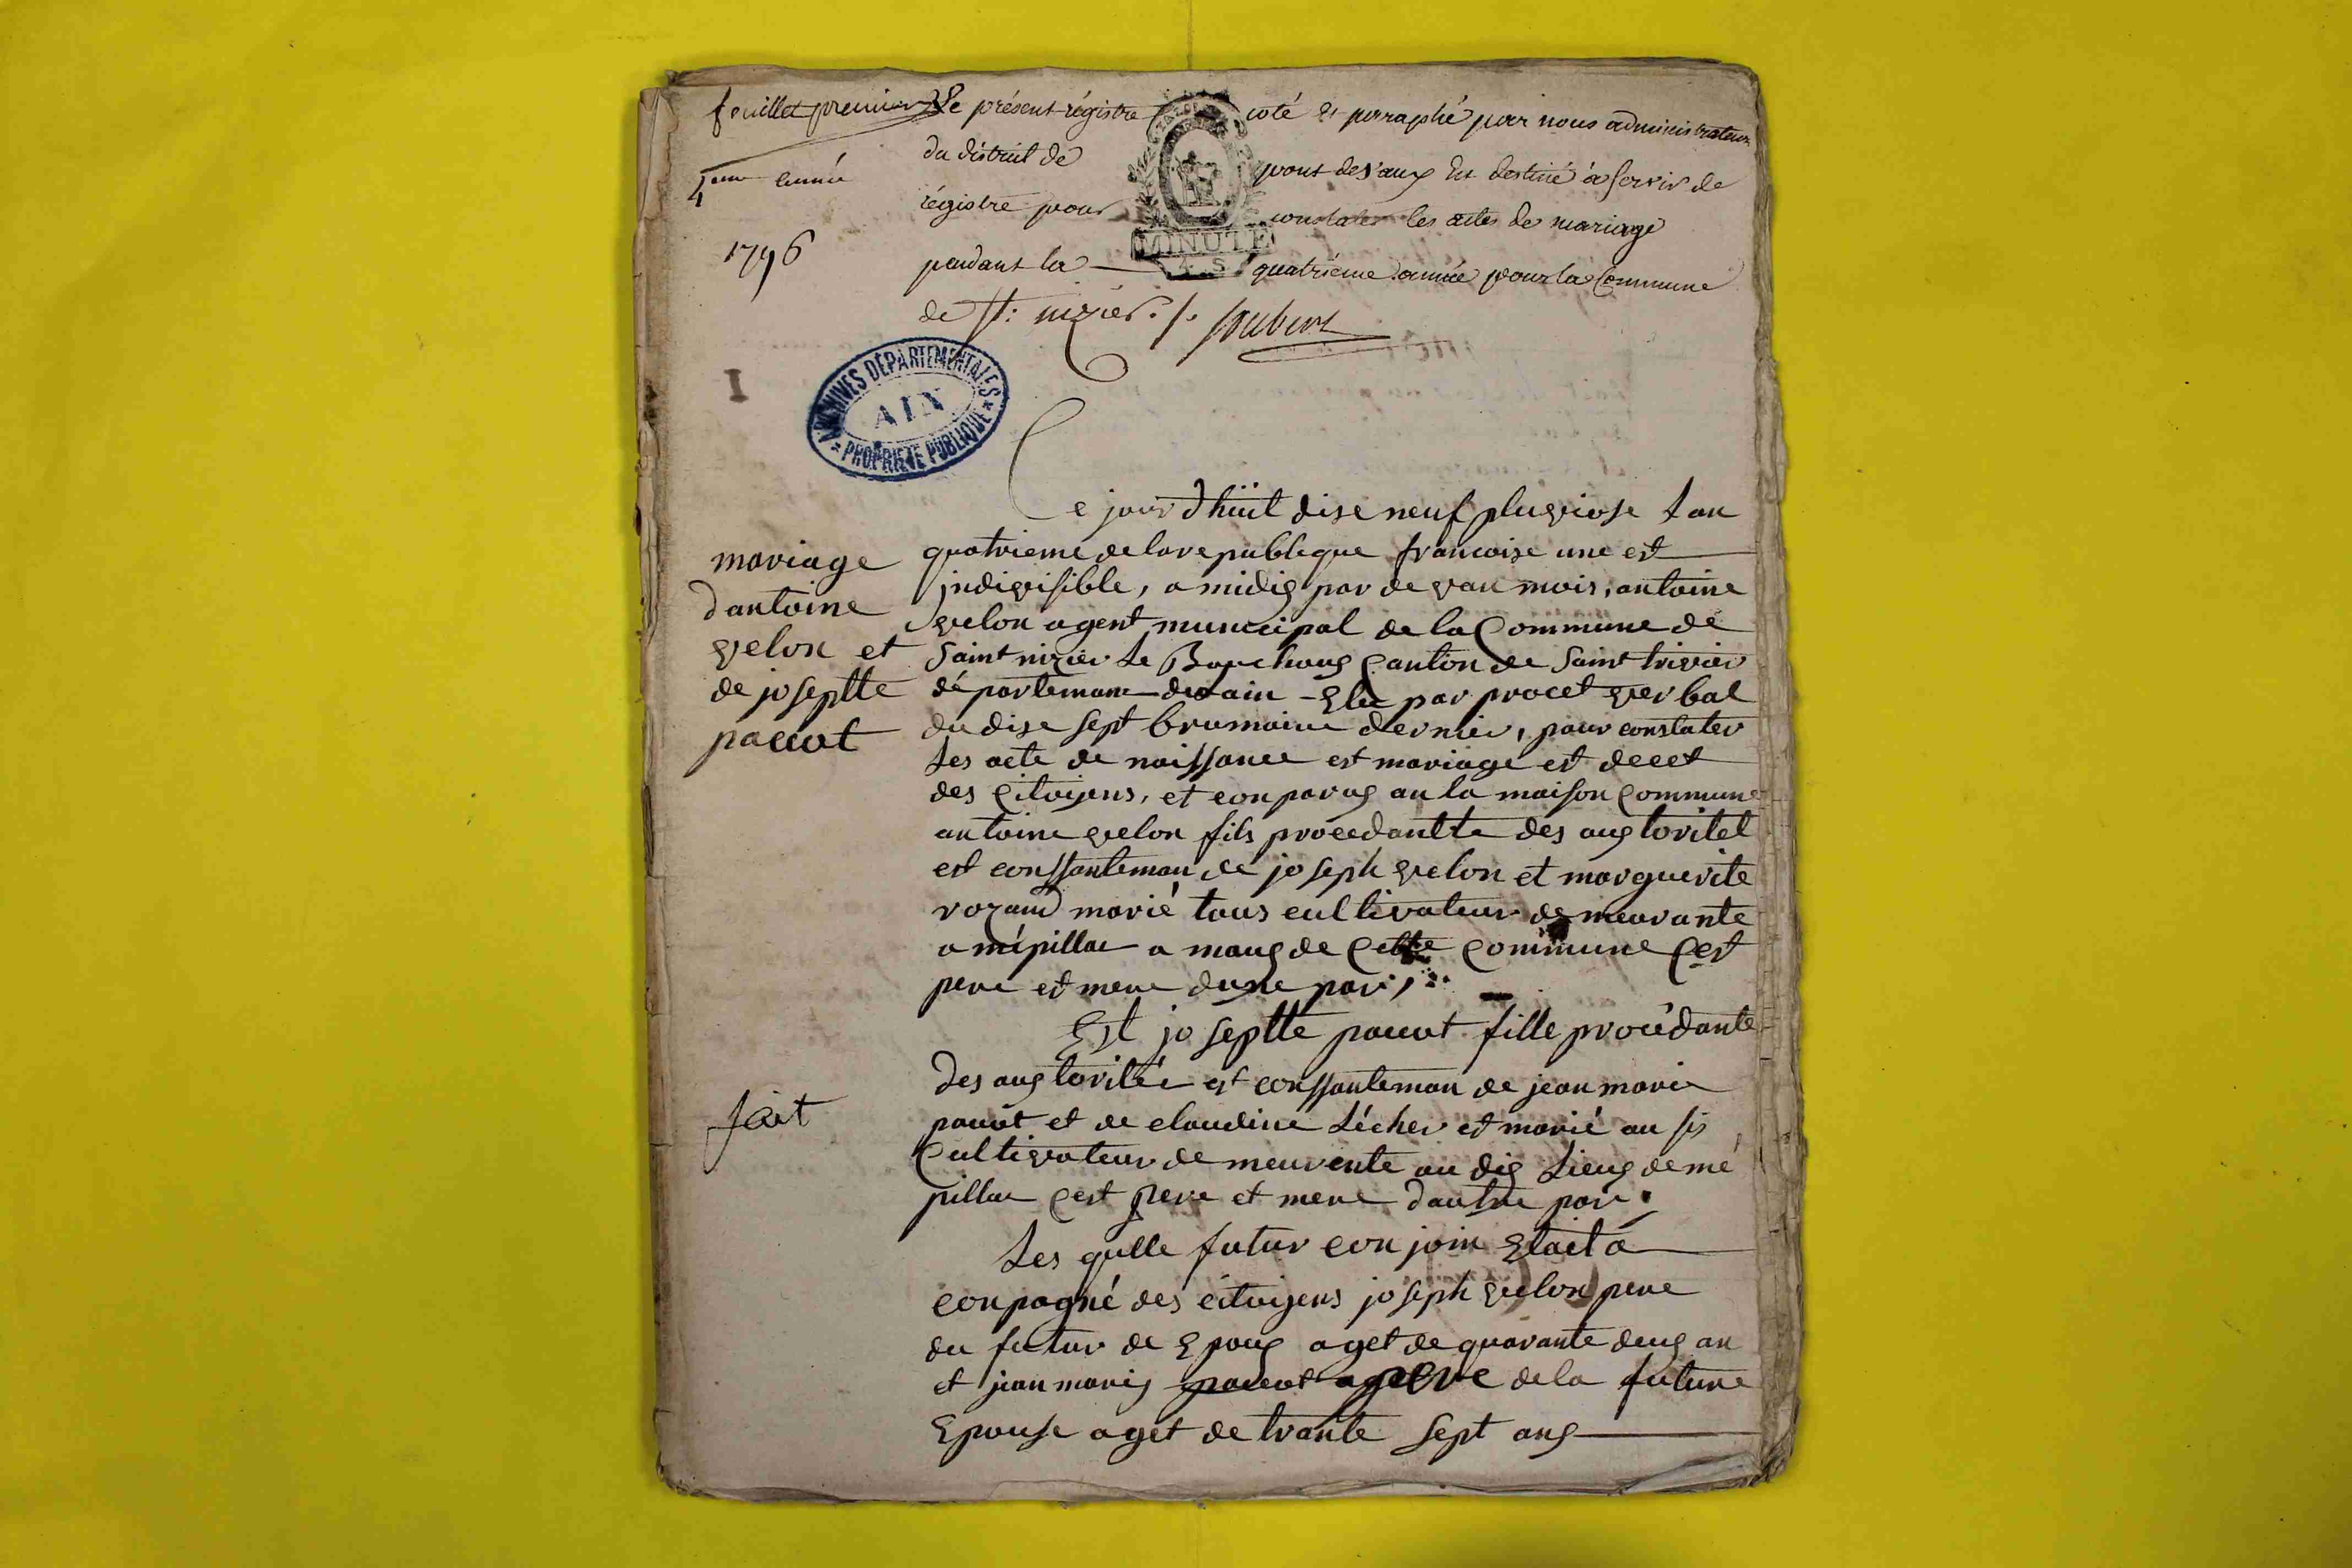 feuillet premier Le présent régistre coté & paraphé par nous administrateur
du district de pont de vaux Est destiné à servir de
4eme année
régistre pour constater les actes de mariage
1796
pendant la quatrieme année pour la Commune
de St: nizier ./.
MINUTE
4. S
ARCHIVES DÉPARTEMENTALES
AIN
* PROPRIÉTÉ PUBLIQUE *
I
Ce jour dhüit dise neuf pluviose lan
quatrieme de la republeque francoise une est
indivisible, a midis par devan mois, antoine
velon agent municipal de la Commune de
saint nizier le Bouchous Canton de saint trivier
département de lain - Elu par procet verbal
du dise sept brumaire dernier, pour constater
les acte de naissance est mariage est decet
des Citoyens, et conparus an la maison Commune
antoine velon fils procedantte des austoritet
est conssanteman de joseph velon et marguerite
rozand marié tous cultivateur demeurante
a mépillat a maus de Cette Commune Cest
pere et mere dune par,
mariage
dantoine
velon et
de joseptte
pacoot
Est joseptte pacout fille procédante
des austoritée est conssanteman de jean marie
pacout et de claudine lécher et marié au si
Cultivateur demeurente au dis lieus de mé
pillat Cest pere et mere dautre par.
fait
Les quelle futur conjoin Etait a
conpagné des citoyens joseph velon pere
du futur de Epous aget de quarante deus an
et jean maris pacout a pere de la future
Epouse aget de trante sept ans